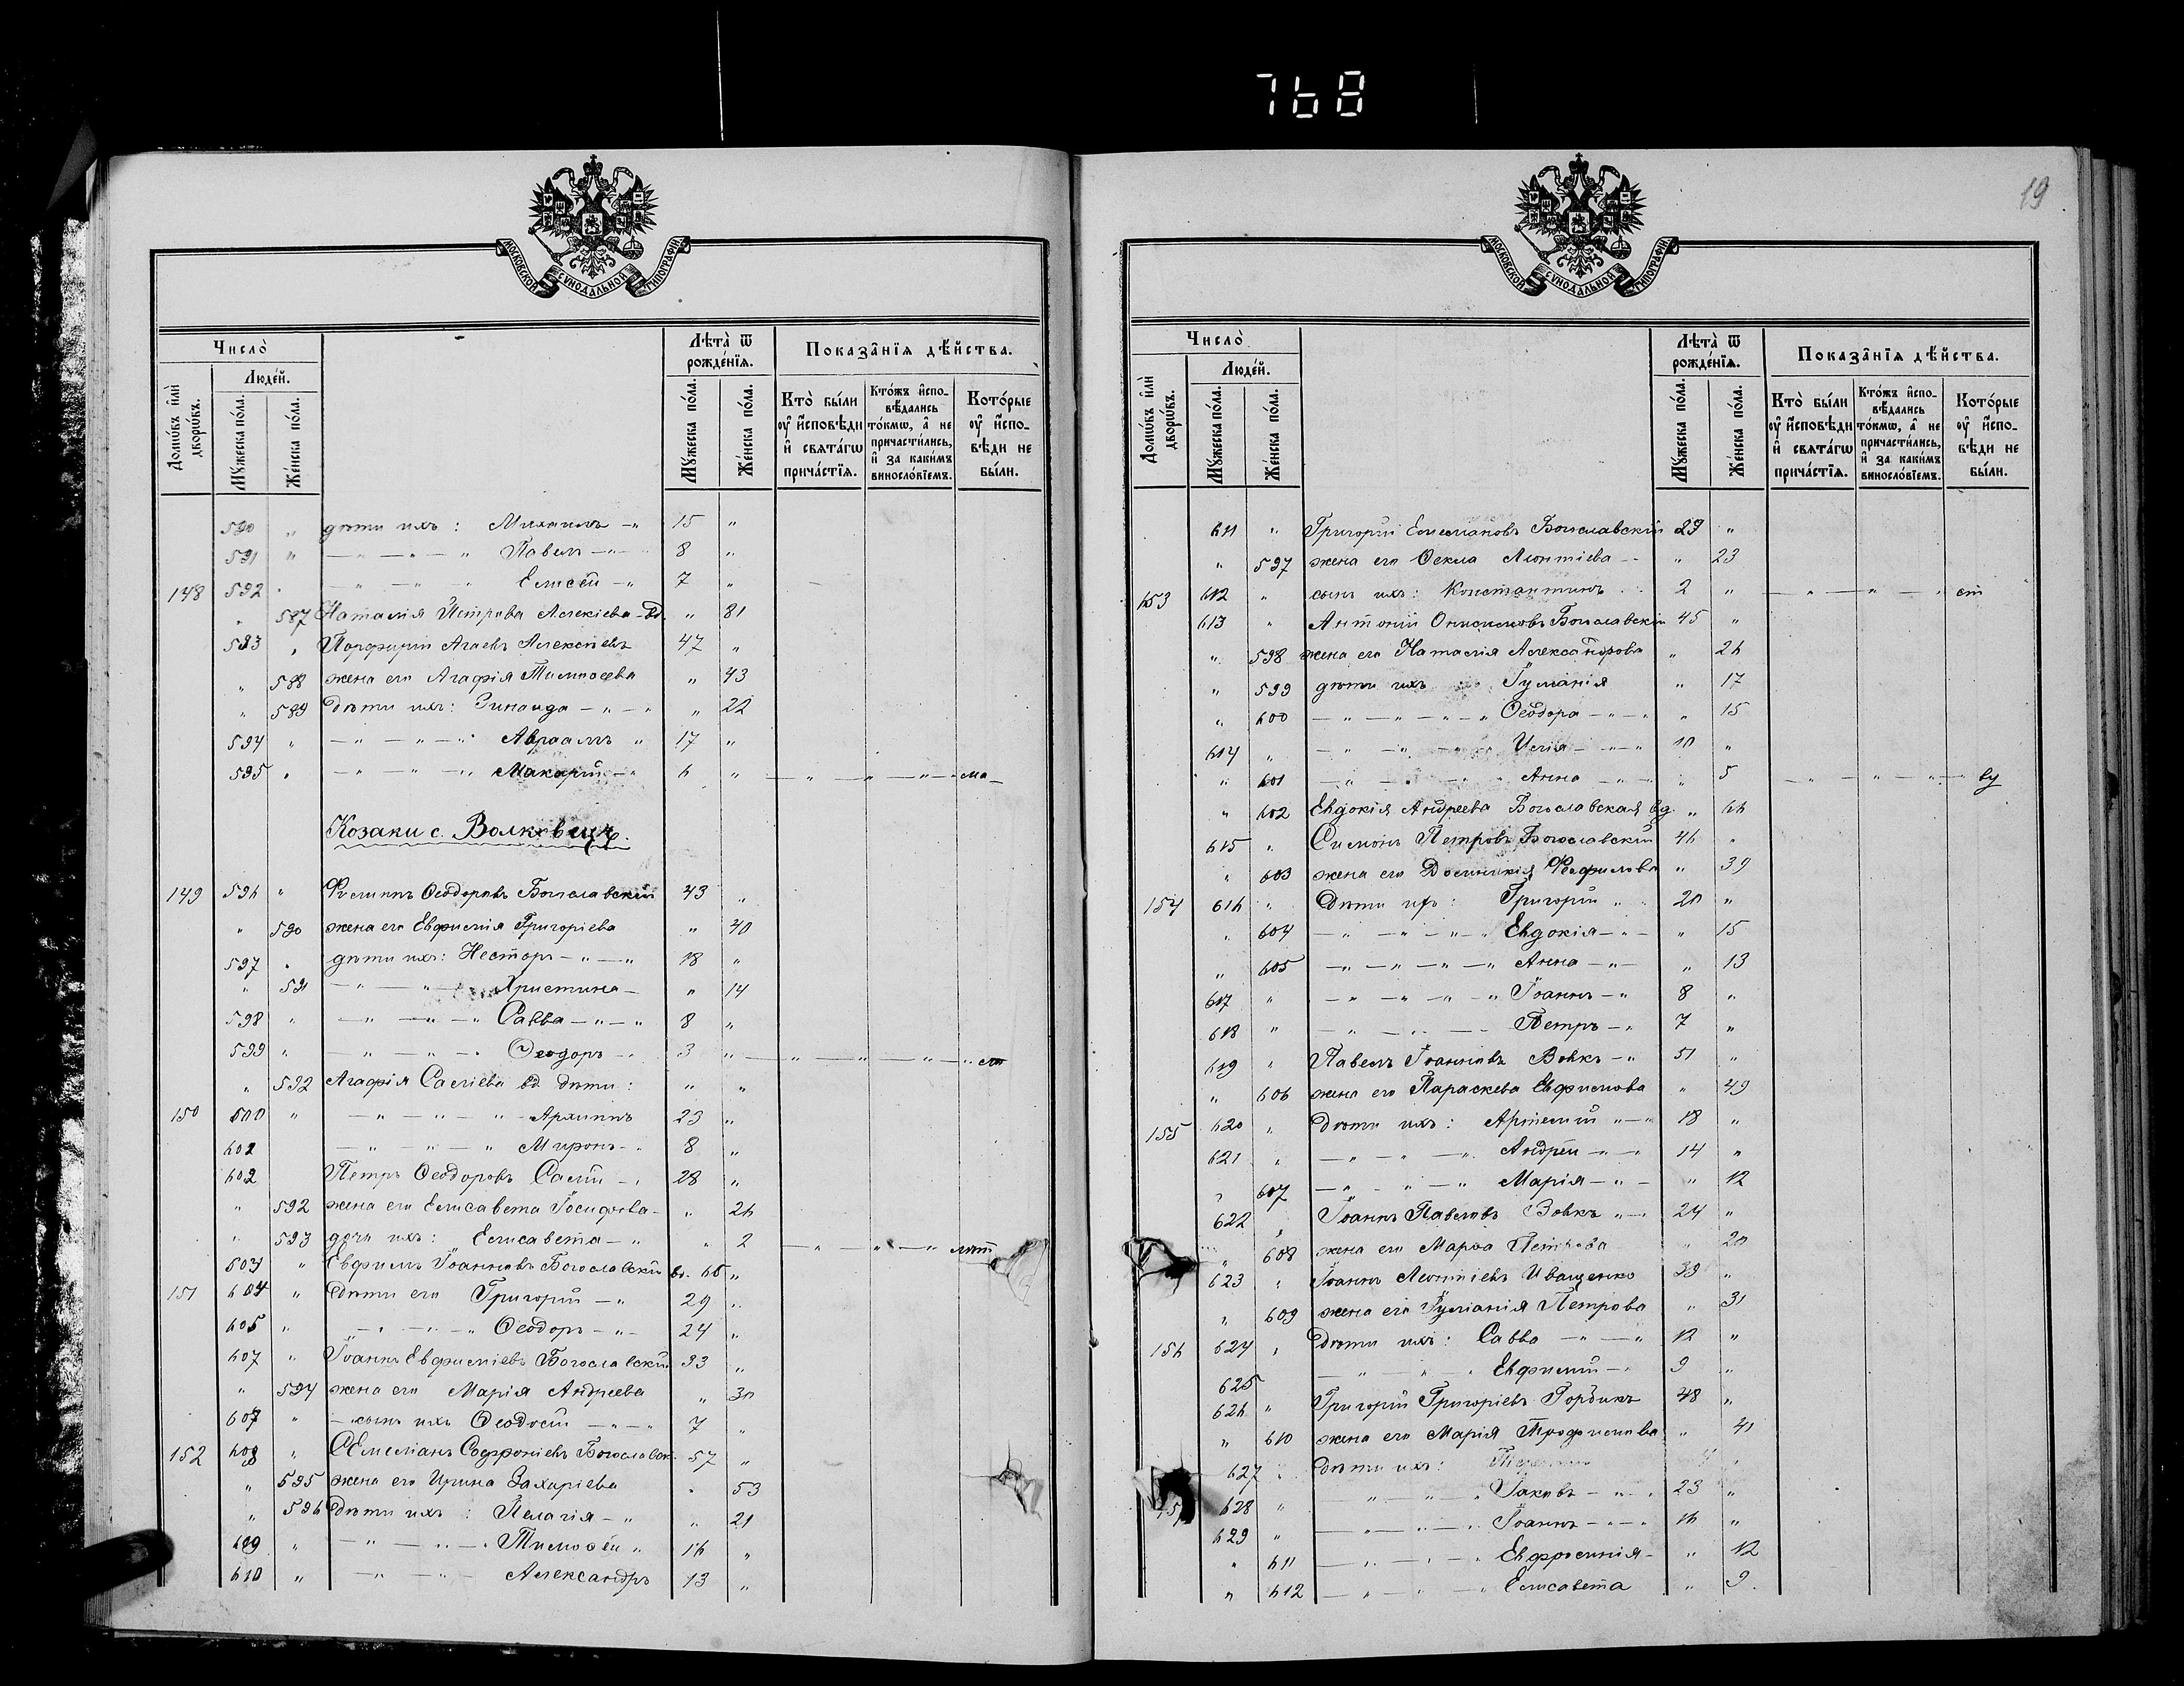 768
МОСКОВСКОЙ СѴНОДАЛЬНОЙ ТИПОГРАФІИ
Число̀
Людей.
Домѡвъ и҆лѝ дворѡвъ.
Мꙋжеска по́ла.
Же́нска по́ла.
Лѣта̀ ѿ рожде́нїѧ.
Мꙋжеска по́ла.
Же́нска по́ла.
Показа̂нїѧ дѣ́йства.
Кто̀ бы́ли оу҆ и҆́сповѣди и҆ свѧта́гѡ прича́стїѧ.
Кто́жъ и҆спо-вѣ́дались то́кмѡ, а҆ не причасти́лись, и҆ за каки́мъ виносло́вїемъ.
Кото́рые оу҆ и҆́спо-вѣди не бы́ли.
590 " дѣти ихъ: Михаилъ -" 15 "
591 " — " — " — " Павелъ — " 8 "
148 592 " — " — " — " Елисей -" 7 "
" 587 Наталія Петрова Алексіева вд. " 81
593 " Порфирій Агаевъ Алексѣевъ 47 "
" 588 жена его Агафія Тимоѳеева " 43
" 589 Дѣти ихъ: Зинаида — " — " " 22
594 " — " — " — " Авраамъ " 17 "
595 " — " — " — " Макарій — " 6 " — " — " — " —
Козаки с. Волковецъ.
149 596 " Филиппъ Ѳеодоровъ Богославскій 43 "
" 590 жена его Евфимія Григоріева " 40
597 " дѣти ихъ: Несторъ — " — " 18 "
" 591 — " — " — Христина — " 14
598 " — " — " — " Савва — " — " 8 "
599 " — " — " — " Ѳеодоръ — " 3 " — " — " — " — "
" 592 Агафія вд дѣти: " "
150 600 " — " — " — " Архиппъ 23 "
602 — " — " — " Миронъ — " 8 "
602 Петръ Ѳеодоровъ 28 "
" 592 жена его Елисавета Іосифова — " 26
" 593 дочь ихъ: Елисавета — " " 2 — " " — "
603 " Евфимъ Іоанновъ Богославскій вд. 65 "
151 604 " Дѣти его Григорій — " 29 "
605 " — " — " — " Ѳеодоръ — " — 24 "
607 " Іоаннъ Евфиміевъ Богославскій 33 "
" 594 жена его Марія Андреева " 30
607 " — сынъ ихъ Ѳеодосій — " — " 7 "
152 608 " Емеліанъ Софроніевъ Богославск. 57 "
" 595 жена его Ирина Захаріева " 53
" 596 Дѣти ихъ: Пелагія — " " 21
609 " — " — " — " Тимоѳей " 16 "
610 " — " — " — Александръ 13 "
19
МОСКОВСКОЙ СѴНОДАЛЬНОЙ ТИПОГРАФІИ
Число̀
Людей.
Домѡвъ и҆лѝ дворѡвъ.
Мꙋжеска по́ла.
Же́нска по́ла.
Лѣта̀ ѿ рожде́нїѧ.
Мꙋжеска по́ла.
Же́нска по́ла.
Показа̂нїѧ дѣ́йства.
Кто̀ бы́ли оу҆ и҆́сповѣди и҆ свѧта́гѡ прича́стїѧ.
Кто́жъ и҆спо-вѣ́дались то́кмѡ, а҆ не причасти́лись, и҆ за каки́мъ виносло́вїемъ.
Кото́рые оу҆ и҆́спо-вѣди не бы́ли.
611 " Григорій Емеліановъ Богославскій 29 "
" 597 жена его Ѳекла Леонтіева — " 23
153 612 " сынъ ихъ: Константинъ 2 " — " — " — "
613 " Антоній Онисимовъ Богославскій 45 "
" 598 жена его Наталія Александрова " 26
" 599 дѣти ихъ Іуліанія " 17
" 600 — " — " — " — " Ѳеодора — " — " " 15
614 " — " — " — " Илія — " — " 10 "
" 601 — " — " — " Анна — " — " " 5 — " — " — " —
" 602 Евдокія Андреева Богославская вд. " 66
615 " Симонъ Петровъ Богославскій 46 "
" 603 жена его Доминикія " 39
154 616 " Дѣти ихъ: Григорій " 20 "
" 604 — " — " — " — " Евдокія — " — " 15
" 605 — " — " — " — " Анна — " — " 13
617 " — " — " — " — " Іоаннъ — " 8 "
618 " — " — " — Петръ — " 7 "
619 " Павелъ Іоанновъ Вовкъ — " 51 "
" 606 жена его Параскева Евфимова " 49
155 620 " Дѣти ихъ: Артемій " — " 18 "
621 " — " — " — " Андрей — " — " 14 "
" 607 — " — " — " Марія — " — " 12
622 " Іоаннъ Павловъ Вовкъ " — " 24 "
" 608 жена его Марѳа Петрова " 20
623 " Іоаннъ Леонтіевъ Иващенко 39 "
" 609 жена его Іуліанія Петрова " 31
156 624 " Дѣти ихъ: Савва — " — " 12 "
625 — " — " — " Евфимій — " 9 "
626 " Григорій Григоріевъ Гордикъ 48 "
" 610 жена его Марія Трофимова " 41
627 " Дѣти ихъ:
628 " — " — " — " Іаковъ — " — " 23 "
629 " — " — " — " Іоаннъ — " — " 16 "
" 611 — " — " — " Евфросинія — " 12
" 612 — " — " — " Елисавета " 9.